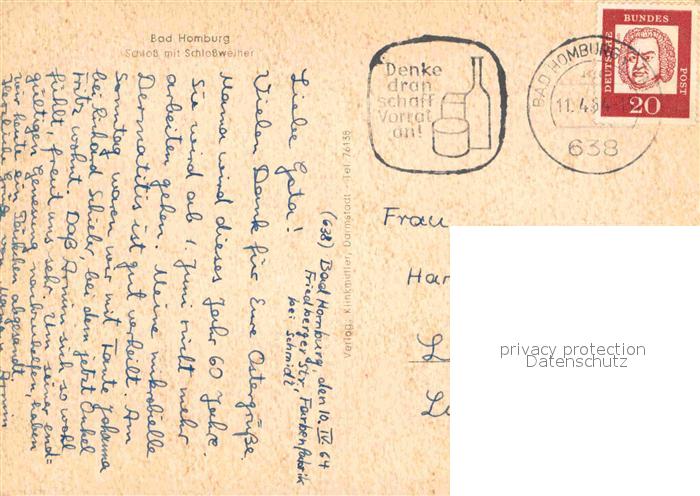 Bad Homburg
Schloß mit Schloßweiher
Denke
dran
schaff
Vorrat
an!
BAD HOMBURG
11.4.64
638
DEUTSCHE BUNDESPOST
20
(638) Bad Homburg, den 10. IV. 64
Friedberger Str., Farbenfabrik
bei Schmidt
Liebe
Vielen Dank für Eure Ostergrüße.
Mama wird dieses Jahr 60 Jahre.
Sie wird ab 1. Juni nicht mehr
arbeiten gehen. Meine mikrobielle
Dermatitis ist gut verheilt. Am
Sonntag waren wir mit Tante Johanna
bei Schieler, bei dem jetzt Onkel
Fritz wohnt. Daß Armin sich so wohl
fühlt, freut uns sehr. Um seiner end=
gültigen Genesung nachzuhelfen, haben
wir heute ein Päckchen abgesandt.
Herzliche Grüße von Mama + Armin
Verlag: Klinkmüller, Darmstadt - Tel. 76138
Frau
Har
privacy protection
Datenschutz